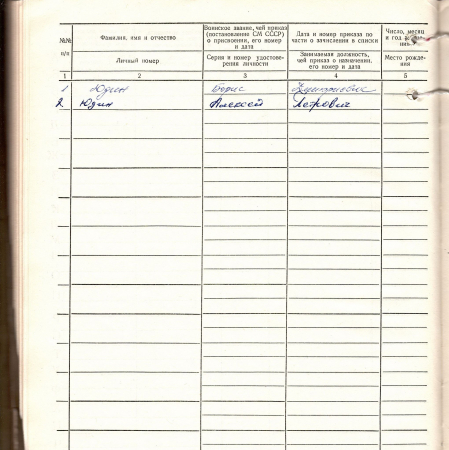 №№ п/п
Фамилия, имя и отчество
Личный номер
Воинское звание, чей приказ
(постановление СМ СССР)
о присвоении, его номер
и дата
Серия и номер удостове-
рения личности
Дата и номер приказа по
части о зачислении в списки
Занимаемая должность,
чей приказ о назначении,
его номер и дата
Число, месяц
и год
Место рожде-
ния
1 2 3 4 5
1 Юдин Борис
2 Юдин Алексей Петрович